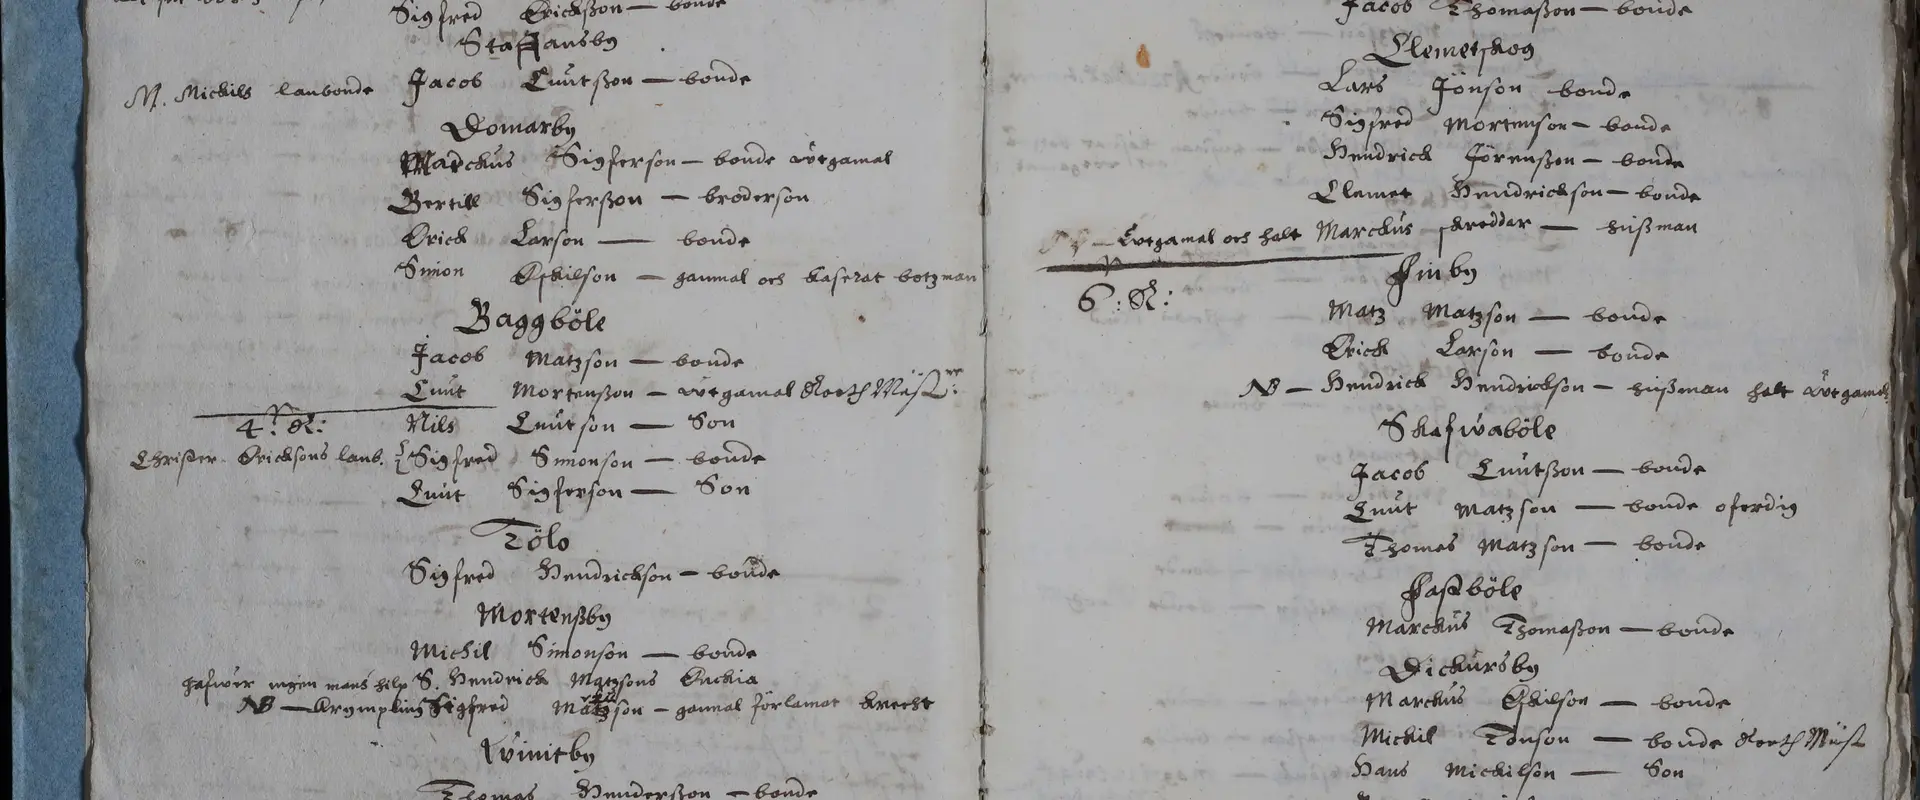 Sigfred Erickßon — bonde
Staffansby
M. Michils lanbonde Jacob Cnutßon — bonde
Domarby
Marckus Sigferson — bonde utgamal
Bertill Sigferßon — broderson
Erick Larson — bonde
Simon Eskilson — gammal och kaserat botzman
Baggböle
Jacob Matzson — bonde
Cnut Mortenßon — utgamal
4: R: Nils Cnutson — Son
Christer Ericksons lanb. Sigfred Simonson — bonde
Cnut Sigferson — Son
Tölo
Sigfred Hendrickson — bonde
Mortenßby
Michil Simonson — bonde
hafwer ingen mans hilp S. Hendrick Matzsons Enckia
NB — Krympling Sigfred Matzson — gammal förlamat knecht
Qvimtby
Thomas Henderßon — bonde
Jacob Thomaßon — bonde
Clemetskog
Lars Jönson bonde
Sigfred Mortenson — bonde
Hendrick Jörenßon — bonde
Clemet Hendrickson — bonde
— Utgamal och halt Marckus skreddar — hußman
Finby
6: R:
Matz Matzson — bonde
Erick Larson — bonde
NB — Hendrick Hendrickson — hußman halt utgamal
Skafwaböle
Jacob Cnutßon — bonde
Cnut Matzson — bonde oferdig
Thomas Matzson — bonde
Fastböle
Marckus Thomaßon — bonde
Dickursby
Marckus Eskilson — bonde
Michil Tonson — bonde
Hans Michilson — Son